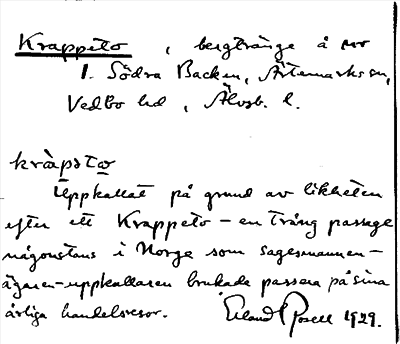 Krappeto, bergtränge å nr
1. Södra Backen, Ärtemarks sn,
Vedbo hd, Älvsb. l.
kràpsto
Uppkallat på grund av likheten
efter ett Krappeto – en trång passage
någonstans i Norge som sagesmannen –
ägaren – uppkallaren brukade passera på sina
årliga handelsresor. Erland Rosell 1929.